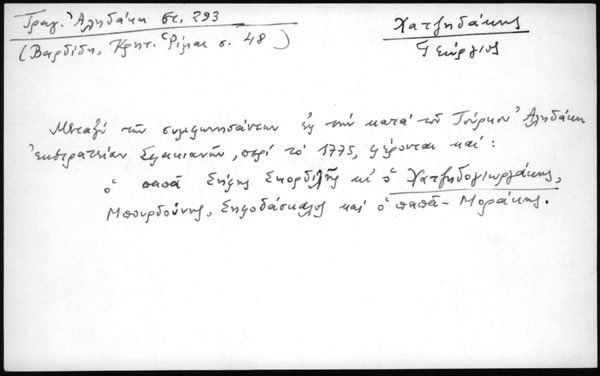 Τραγ. Ἀληδάκη στ. 293
(Βαρδίδη, Κρητ. Ρίμαι σ. 48)
Χατζηδάκης
Γεώργιος
Μεταξύ τῶν συμφωνησάντων εἰς τήν κατά τοῦ Τούρκου Ἀληδάκη
ἐκστρατείαν Σφακιανῶν, περί τό 1775, φέρονται καί:
ὁ παπᾶ Σήφης Σκορδίλης κι ὁ Χατζηδογιωργάκης,
Μπουρδούνης, Σηφοδάσκαλος καί ὁ παπᾶ-Μοράκης.